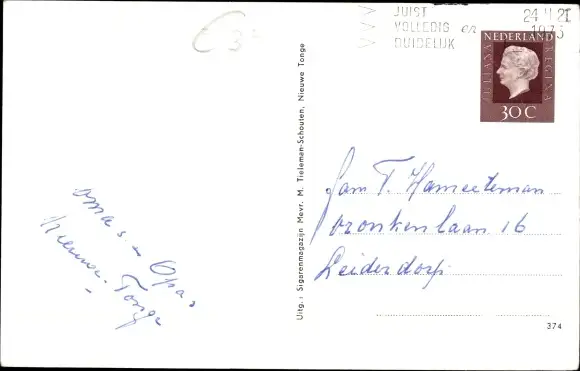 C 3-
JUIST
VOLLEDIG en
DUIDELIJK
1973
NEDERLAND
JULIANA REGINA
30 C
Oma s en Opa s
Nieuwe-Tonge
Uitg.: Sigarenmagazijn Mevr. M. Tieleman-Schouten, Nieuwe Tonge
Fam T. Hameeteman
Vronkenlaan 16
Leiderdorp
374